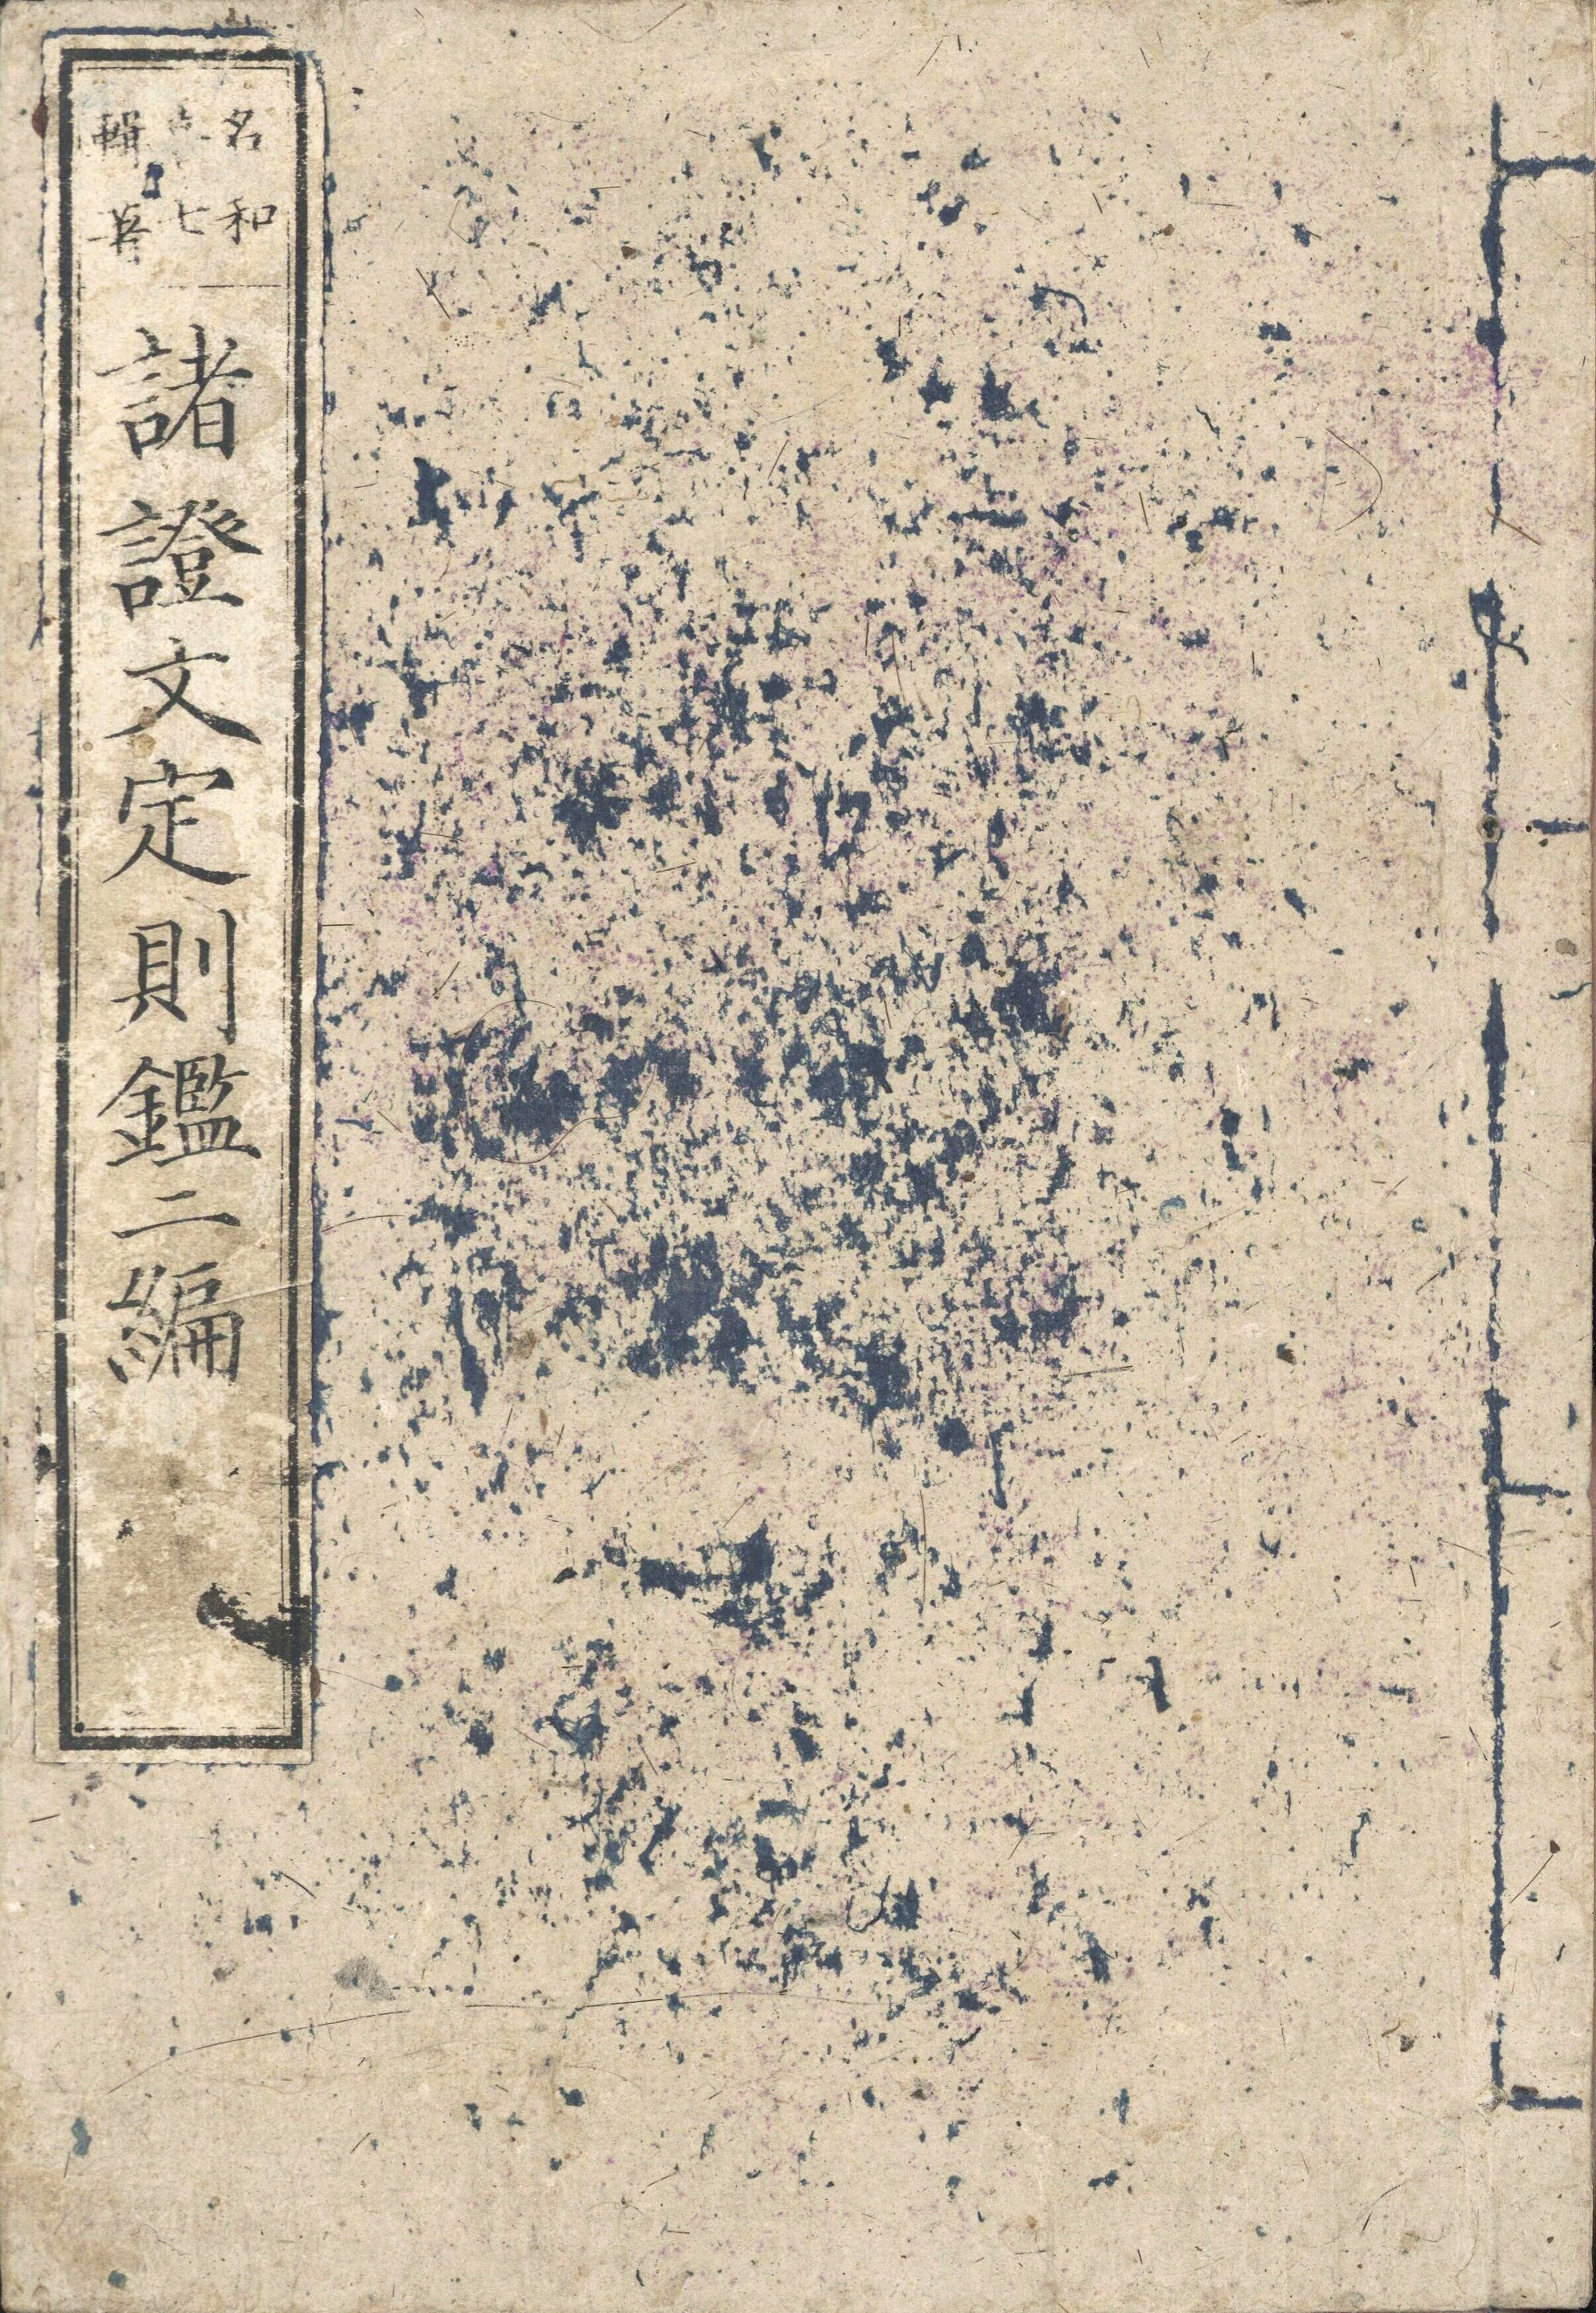 名和
七
輯著
諸證文定則鑑二編